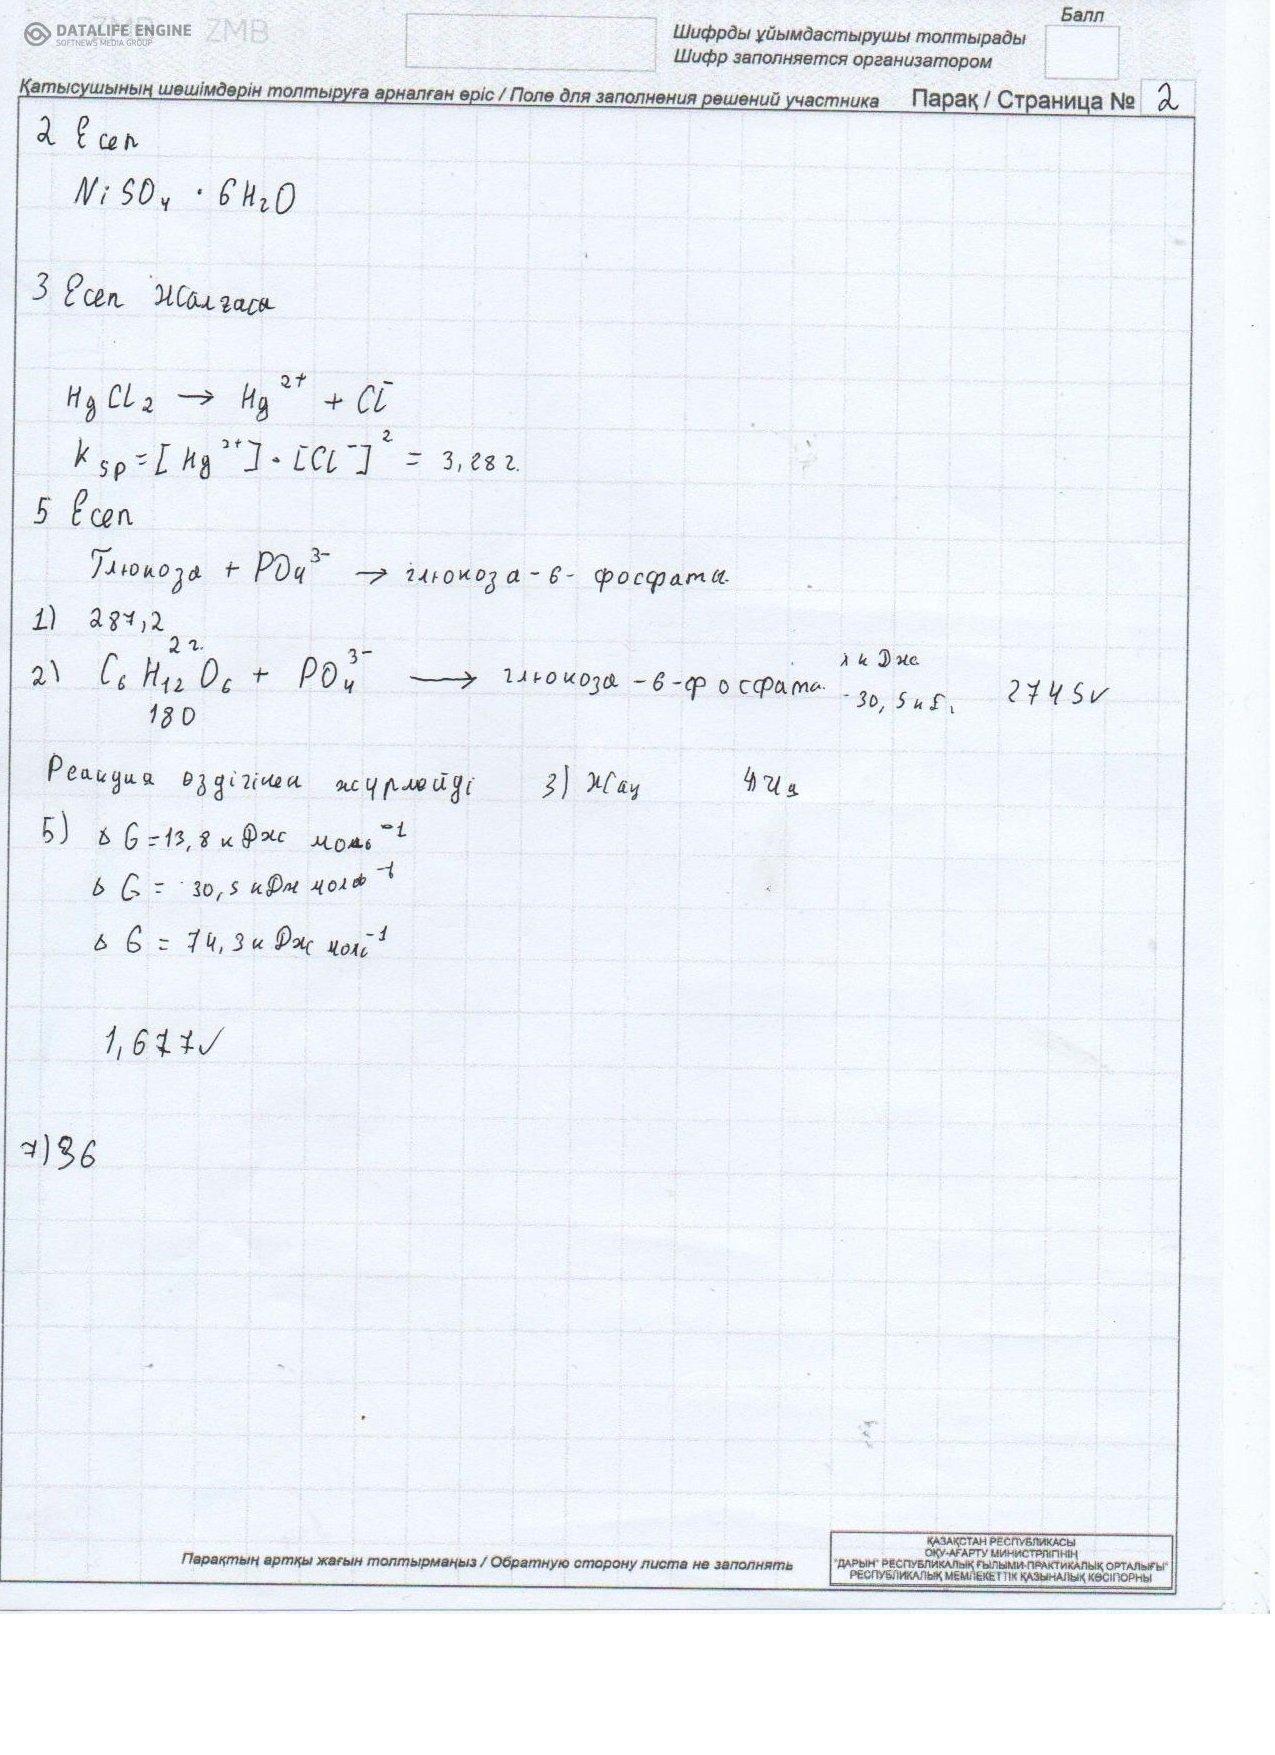 DATALIFE ENGINE
SOFTNEWS MEDIA GROUP
ZMB
Балл
Шифрды ұйымдастырушы толтырады
Шифр заполняется организатором
Қатысушының шешімдерін толтыруға арналған өріс / Поле для заполнения решений участника
Парақ / Страница № 2
2 Есеп
NiSO4 · 6H2O
3 Есеп жалғасы
HgCl2 → Hg²⁺ + Cl⁻
Ksp = [Hg²⁺] · [Cl⁻]² = 3,28 г.
5 Есеп
Глюкоза + PO4³⁻ → глюкоза-6-фосфаты.
1) 287,2
2 г.
2) C6H12O6 + PO4³⁻ → глюкоза-6-фосфаты.
180
-30,5
2745✓
Реакция өздігінен жүрмейді 3) Жау
5) ΔG = 13,8 кДж моль⁻¹
ΔG = -30,5 кДж моль⁻¹
ΔG = 74,3 кДж моль⁻¹
1,677✓
7) 36
Парақтың артқы жағын толтырмаңыз / Обратную сторону листа не заполнять
ҚАЗАҚСТАН РЕСПУБЛИКАСЫ
ОҚУ-АҒАРТУ МИНИСТРЛІГІНІҢ
"ДАРЫН" РЕСПУБЛИКАЛЫҚ ҒЫЛЫМИ-ПРАКТИКАЛЫҚ ОРТАЛЫҒЫ"
РЕСПУБЛИКАЛЫҚ МЕМЛЕКЕТТІК ҚАЗЫНАЛЫҚ КӘСІПОРНЫ